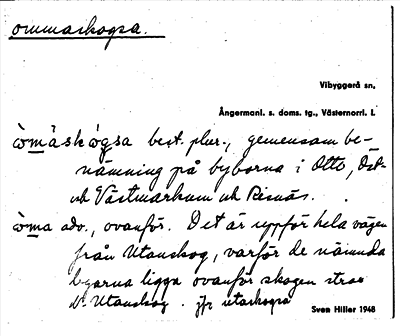 ommaskogsa.
Vibyggerå sn.
Ångermanl. s. doms. tg., Västernorrl. l.
òmäskógsa best. plur., gemensam be-
nämning på byborna i Otto, Öst-
och Västmarkum och Resnäs.
òma adv., ovanför. Det är uppför hela vägen
från Utanskog, varför de nämnda
byarna ligga ovanför skogen
Utanskog. jfr utaskogsa
Sven Hiller 1948